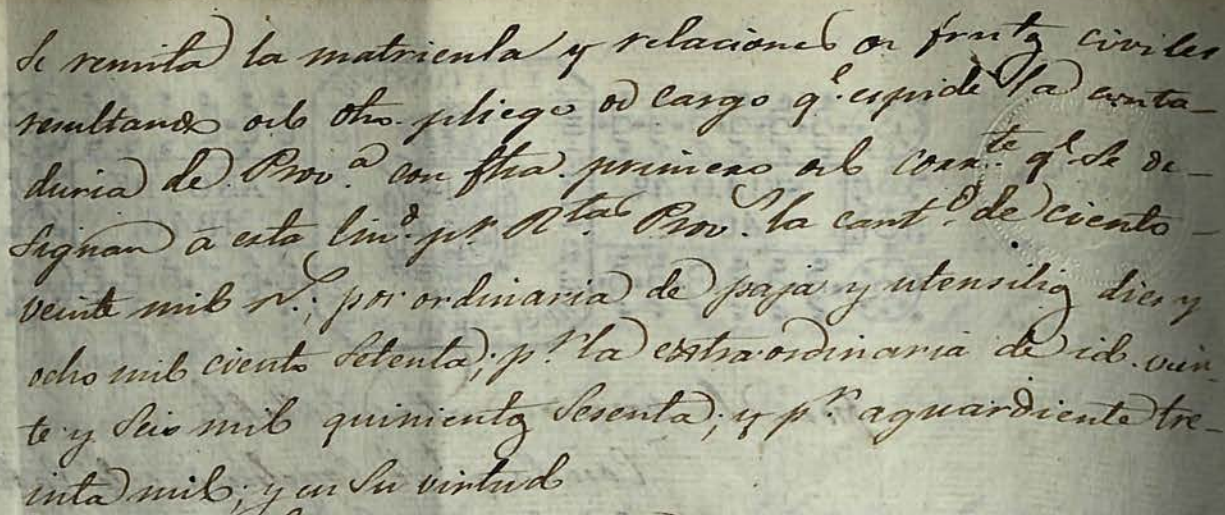 se remita la matricula y relaciones de frutos civiles
resultando del otro. pliego de cargo q.e espide la conta-
duria de Prov.a con fha. primero del corr.te q.e se de-
signan á esta Ciud.d p.r R.tas Prov.s la cant.d de ciento
veinte mil r.s; por ordinaria de paja y utensilios diez y
ocho mil ciento setenta; p.r la extraordinaria de id. vein-
te y seis mil quinientos sesenta; y p.r aguardiente tre-
inta mil; y en su virtud